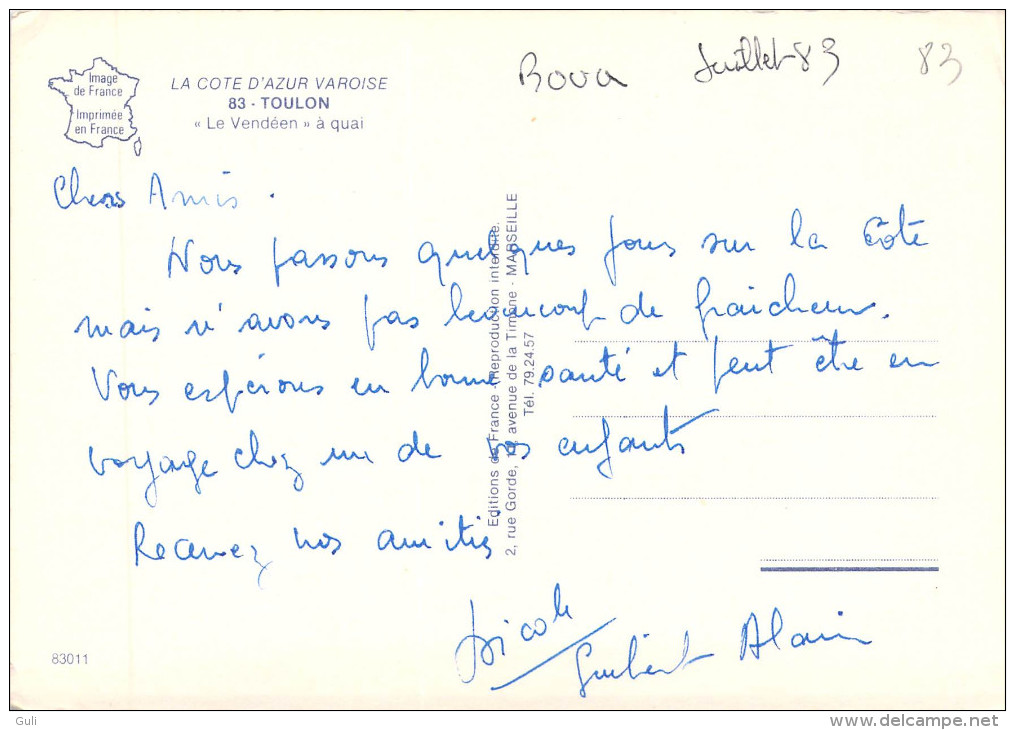 Image
de France
Imprimée
en France
LA COTE D'AZUR VAROISE
83 - TOULON
« Le Vendéen » à quai
Juillet 83
83
Chers Amis.
Nous passons quelques jours sur la Côte
mais n'avons pas beaucoup de fraicheur.
Vous espérons en bonne santé et peut être en
voyage chez un de vos enfants
Recevez nos amitiés
Nicole
Alain
Editions de France - (Reproduction interdite.
2, rue Gorde, avenue de la Timone - MARSEILLE
Tél. 79.24.57
83011
Guli
delcampe.net